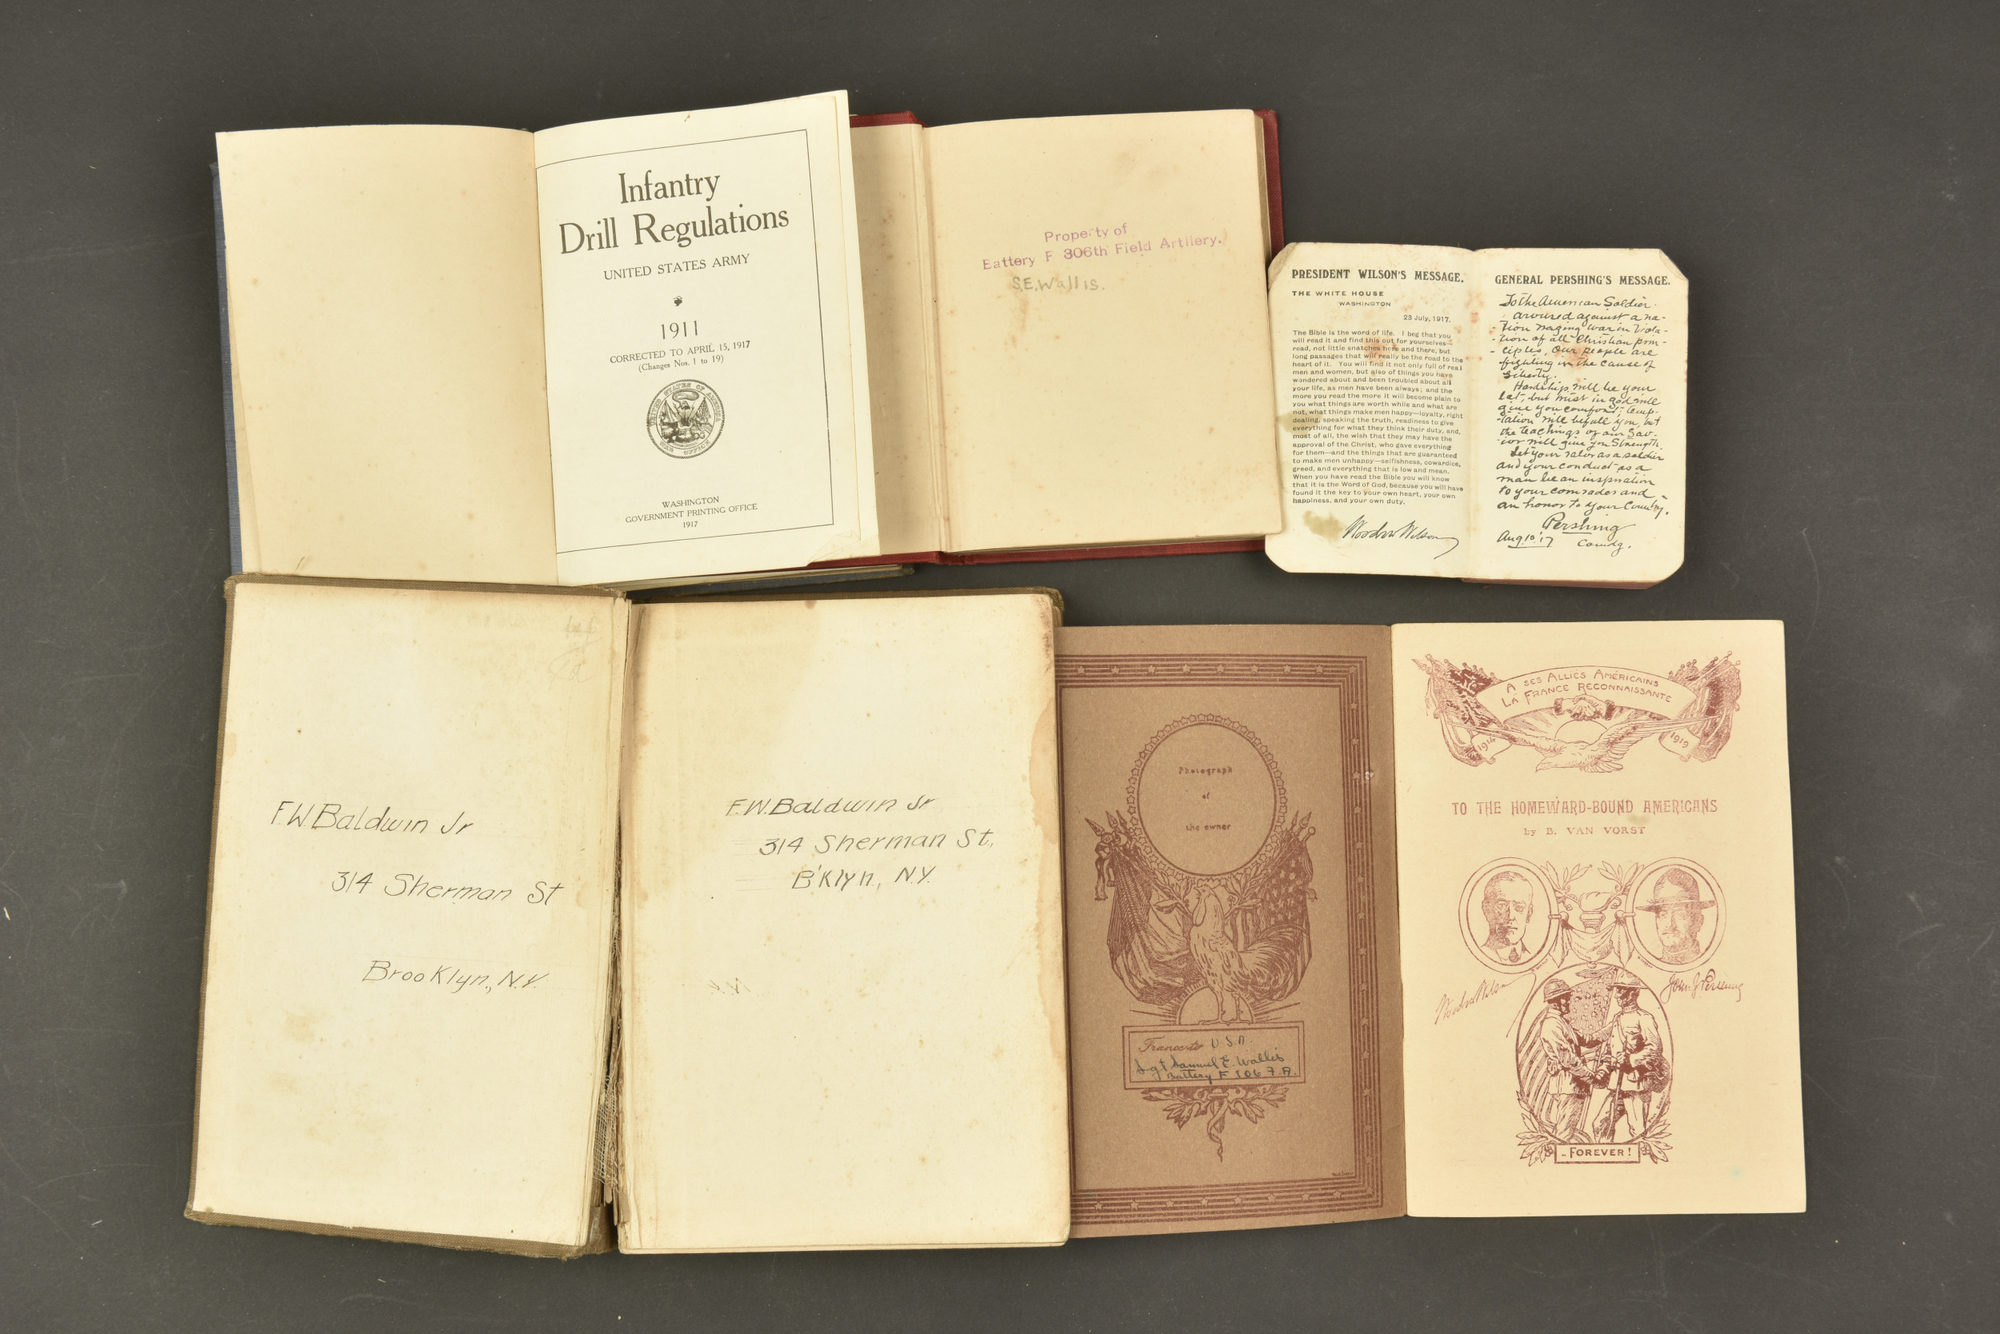 Infantry
Drill Regulations
UNITED STATES ARMY
1911
CORRECTED TO APRIL 15, 1917
(Changes Nos. 1 to 19)
WASHINGTON
GOVERNMENT PRINTING OFFICE
1917
Property of
Battery F 306th Field Artillery.
S.E. Wallis.
PRESIDENT WILSON'S MESSAGE.
THE WHITE HOUSE
WASHINGTON
23 July, 1917.
The Bible is the word of life. I beg that you
will read it and find this out for yourselves—
read, not little snatches here and there, but
long passages that will really be the road to the
heart of it. You will find it not only full of real
men and women, but also of things you have
wondered about and been troubled about all
your life, as men have been always; and the
more you read the more it will become plain to
you what things are worth while and what are
not, what things make men happy—loyalty, right
dealing, speaking the truth, readiness to give
everything for what they think their duty, and,
most of all, the wish that they may have the
approval of the Christ, who gave everything
for them—and the things that are guaranteed
to make men unhappy—selfishness, cowardice,
greed, and everything that is low and mean.
When you have read the Bible you will know
that it is the Word of God, because you will have
found it the key to your own heart, your own
happiness, and your own duty.
Woodrow Wilson
GENERAL PERSHING'S MESSAGE.
To the American Soldier.
aroused against a na-
-tion waging war in viola-
-tion of all Christian prin-
-ciples, our people are
fighting in the cause of
liberty.
Hardships will be your
lot, but trust in God will
give you comfort; temp-
-tation will befall you, but
the teachings of our Sav-
-ior will give you strength.
Let your valor as a soldier
and your conduct as a
man be an inspiration
to your comrades and
an honor to your country.
Pershing
Aug 10 '17 Comdg.
F.W. Baldwin Jr
314 Sherman St
Brooklyn, N.Y.
F.W. Baldwin Jr
314 Sherman St,
B'Klyn, N.Y.
Photograph
of
the owner
France to U.S.A.
Sgt Samuel E. Wallis
Battery F 306 F.A.
A SES ALLIÉS AMÉRICAINS
LA FRANCE RECONNAISSANTE
1914
1919
TO THE HOMEWARD-BOUND AMERICANS
by B. VAN VORST
Woodrow Wilson
John J Pershing
.. FOREVER !